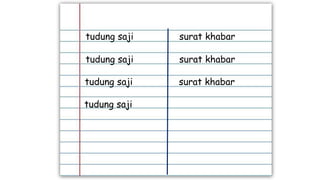 tudung saji surat khabar
tudung saji surat khabar
tudung saji surat khabar
tudung saji